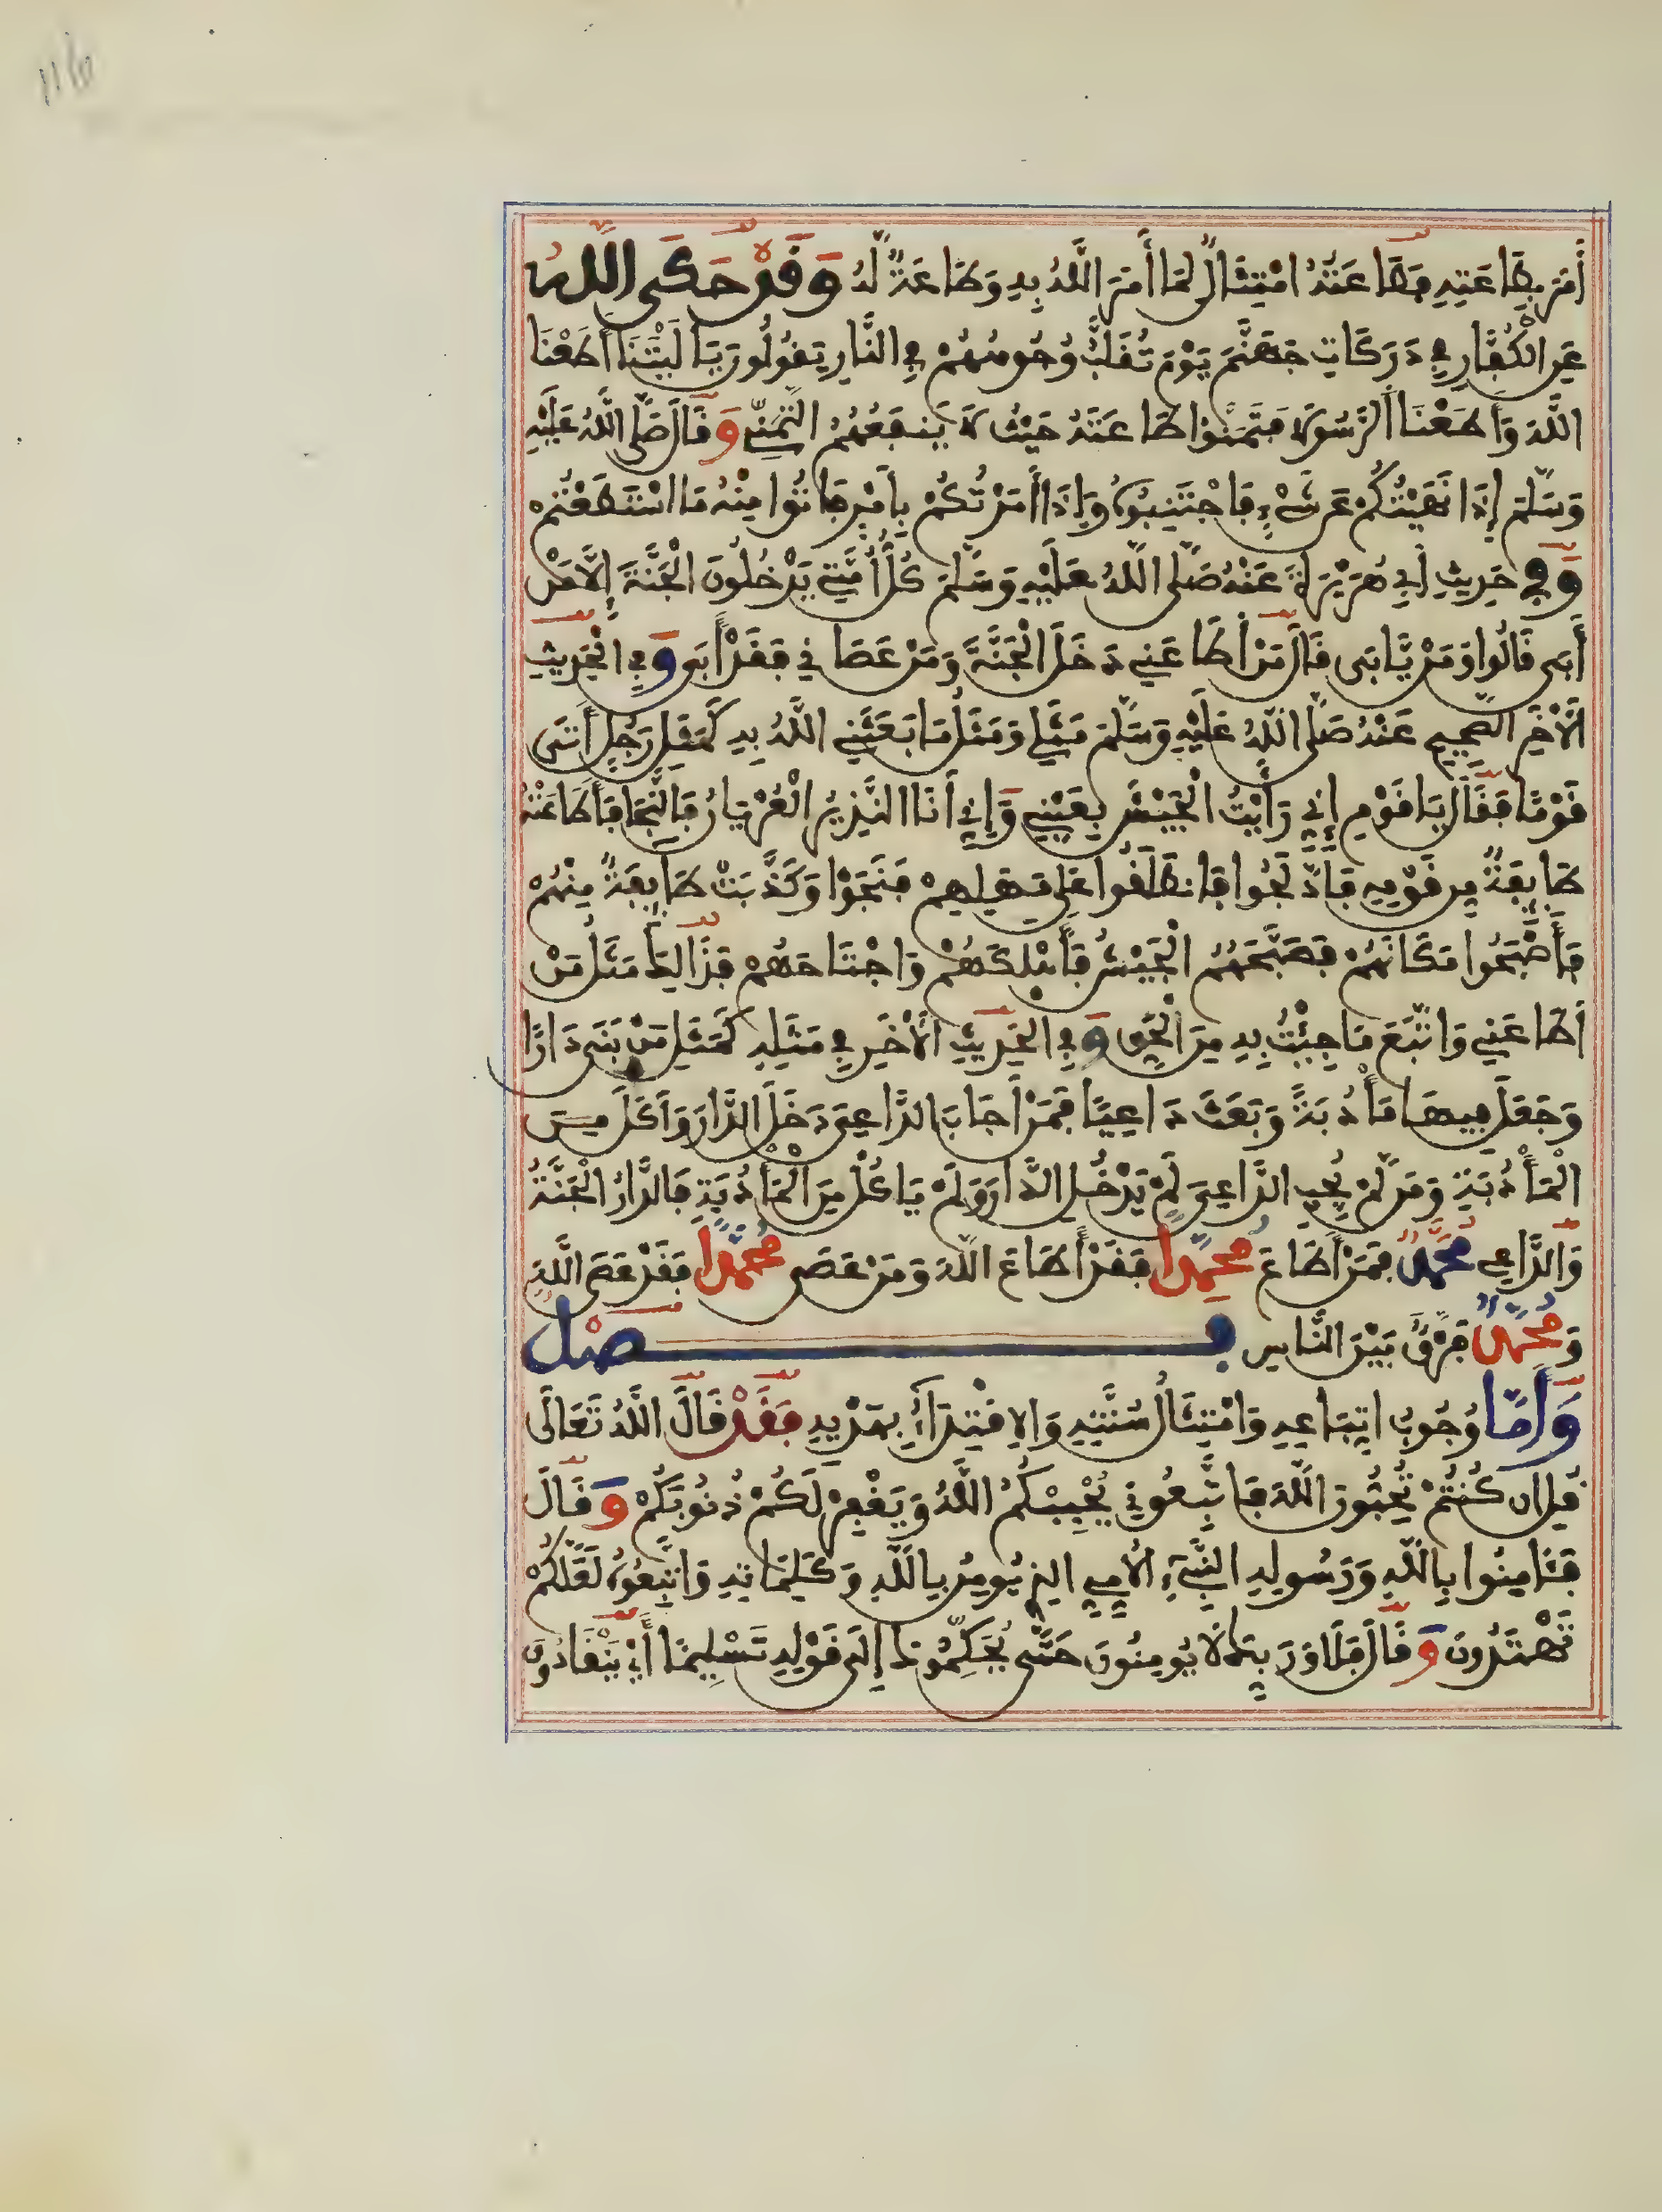 أَمَرَ بِطَاعَتِهِ فَطَاعَتُهُ امْتِثَالٌ لِمَا أَمَرَ اللَّهُ بِهِ وَطَاعَةٌ لَهُ وَقَدْ حَكَى اللَّهُ
عَنِ الْكُفَّارِ فِي دَرَكَاتِ جَهَنَّمَ يَوْمَ تُقَلَّبُ وُجُوهُهُمْ فِي النَّارِ يَقُولُونَ يَا لَيْتَنَا أَطَعْنَا
اللَّهَ وَأَطَعْنَا الرَّسُولَا فَتَمَنَّوْا طَاعَتَهُ حَيْثُ لَا يَنْفَعُهُمُ التَّمَنِّي وَقَالَ صَلَّى اللَّهُ عَلَيْهِ
وَسَلَّمَ إِذَا نَهَيْتُكُمْ عَنْ شَيْءٍ فَاجْتَنِبُوهُ وَإِذَا أَمَرْتُكُمْ بِأَمْرٍ فَاتُوا مِنْهُ مَا اسْتَطَعْتُمْ
وَفِي حَدِيثِ أَبِي هُرَيْرَةَ عَنْهُ صَلَّى اللَّهُ عَلَيْهِ وَسَلَّمَ كُلُّ أُمَّتِي يَدْخُلُونَ الْجَنَّةَ إِلَّا مَنْ
أَبَى قَالُوا وَمَنْ يَابَى قَالَ مَنْ أَطَاعَنِي دَخَلَ الْجَنَّةَ وَمَنْ عَصَانِي فَقَدْ أَبَى وَفِي الْحَدِيثِ
الْأَخَرِ الصَّحِيحِ عَنْهُ صَلَّى اللَّهُ عَلَيْهِ وَسَلَّمَ مَثَلِي وَمَثَلُ مَا بَعَثَنِي اللَّهُ بِهِ كَمَثَلِ رَجُلٍ أَتَى
قَوْمًا فَقَالَ يَا قَوْمِ إِنِّي رَأَيْتُ الْجَيْشَ بِعَيْنِي وَإِنِّي أَنَا النَّذِيرُ الْعُرْيَانُ فَالنَّجَا فَأَطَاعَتْهُ
طَايِفَةٌ مِنْ قَوْمِهِ فَأَدْلَجُوا فَانْطَلَقُوا عَلَى مَهَلِهِمْ فَنَجَوْا وَكَذَّبَتْ طَايِفَةٌ مِنْهُمْ
فَأَصْبَحُوا مَكَانَهُمْ فَصَبَّحَهُمُ الْجَيْشُ فَأَهْلَكَهُمْ وَاجْتَاحَهُمْ فَذَالِكَ مَثَلُ مَنْ
أَطَاعَنِي وَاتَّبَعَ مَا جِئْتُ بِهِ مِنَ الْحَقِّ وَفِي الْحَدِيثِ الْأَخَرِ فِي مَثَلِهِ كَمَثَلِ مَنْ بَنَى دَارًا
وَجَعَلَ فِيهَا مَأْدُبَةً وَبَعَثَ دَاعِيًا فَمَنْ أَجَابَ الدَّاعِيَ دَخَلَ الدَّارَ وَأَكَلَ مِنَ
الْمَأْدُبَةِ وَمَنْ لَمْ يُجِبِ الدَّاعِيَ لَمْ يَدْخُلِ الدَّارَ وَلَمْ يَاكُلْ مِنَ الْمَأْدُبَةِ فَالدَّارُ الْجَنَّةُ
وَالدَّاعِي مُحَمَّدٌ فَمَنْ أَطَاعَ مُحَمَّدًا فَقَدْ أَطَاعَ اللَّهَ وَمَنْ عَصَى مُحَمَّدًا فَقَدْ عَصَى اللَّهَ
وَمُحَمَّدٌ فَرْقٌ بَيْنَ النَّاسِ فَصْلٌ
وَأَمَّا وُجُوبُ اتِّبَاعِهِ وَامْتِثَالُ سُنَّتِهِ وَالِاقْتِدَاءِ بِهَدْيِهِ فَقَدْ قَالَ اللَّهُ تَعَالَى
قُلِ ان كُنْتُمْ تُحِبُّونَ اللَّهَ فَاتَّبِعُونِي يُحْبِبْكُمُ اللَّهُ وَيَغْفِرْ لَكُمْ ذُنُوبَكُمْ وَقَالَ
فَئَامِنُوا بِاللَّهِ وَرَسُولِهِ النَّبِيءِ الْأُمِّيِّ الذِي يُومِنُ بِاللَّهِ وَكَلِمَاتِهِ وَاتَّبِعُوهُ لَعَلَّكُمْ
تَهْتَدُونَ وَقَالَ فَلَا وَرَبِّكَ لَا يُومِنُونَ حَتَّى يُحَكِّمُوكَ إِلَى قَوْلِهِ تَسْلِيمًا أَيْ يَنْقَادُونَ